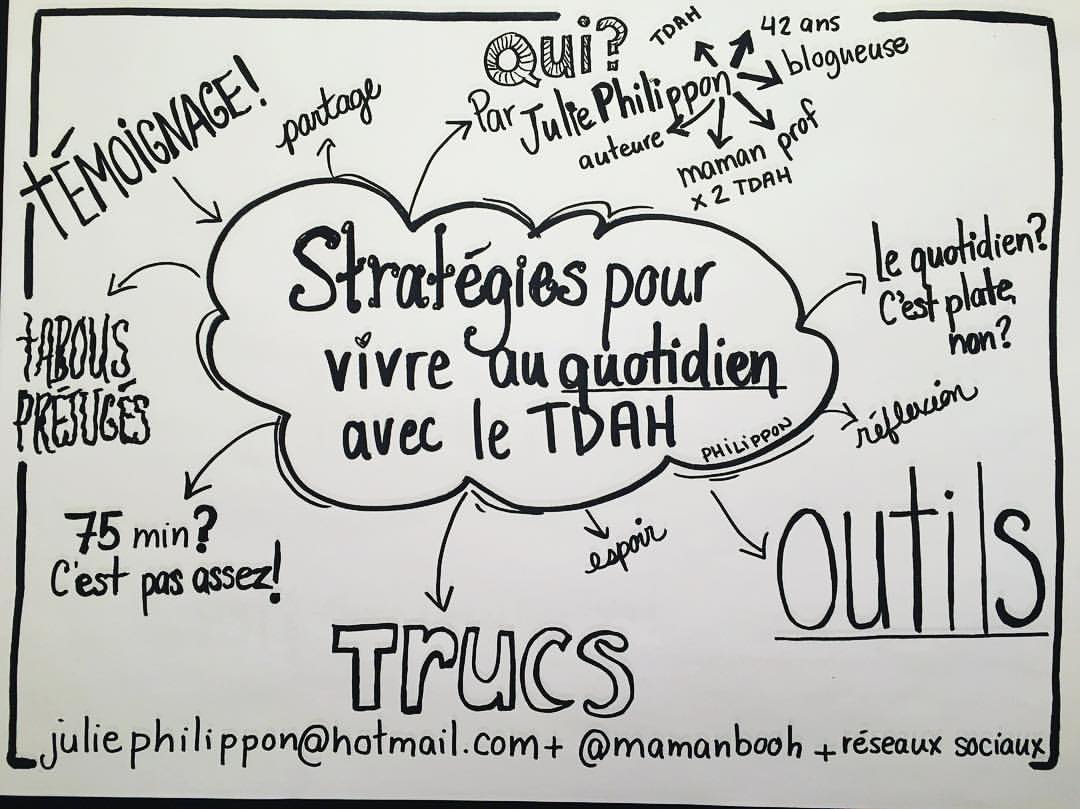 Qui?
TDAH
42 ans
blogueuse
Par Julie Philippon
auteure
prof
maman
x 2 TDAH
TÉMOIGNAGE!
partage
Stratégies pour
vivre au quotidien
avec le TDAH
PHILIPPON
Le quotidien?
C'est plate,
non?
réflexion
TABOUS
PRÉJUGÉS
75 min?
C'est pas assez!
espoir
OUTILS
TRUCS
juliephilippon@hotmail.com + @mamanbooh + réseaux sociaux